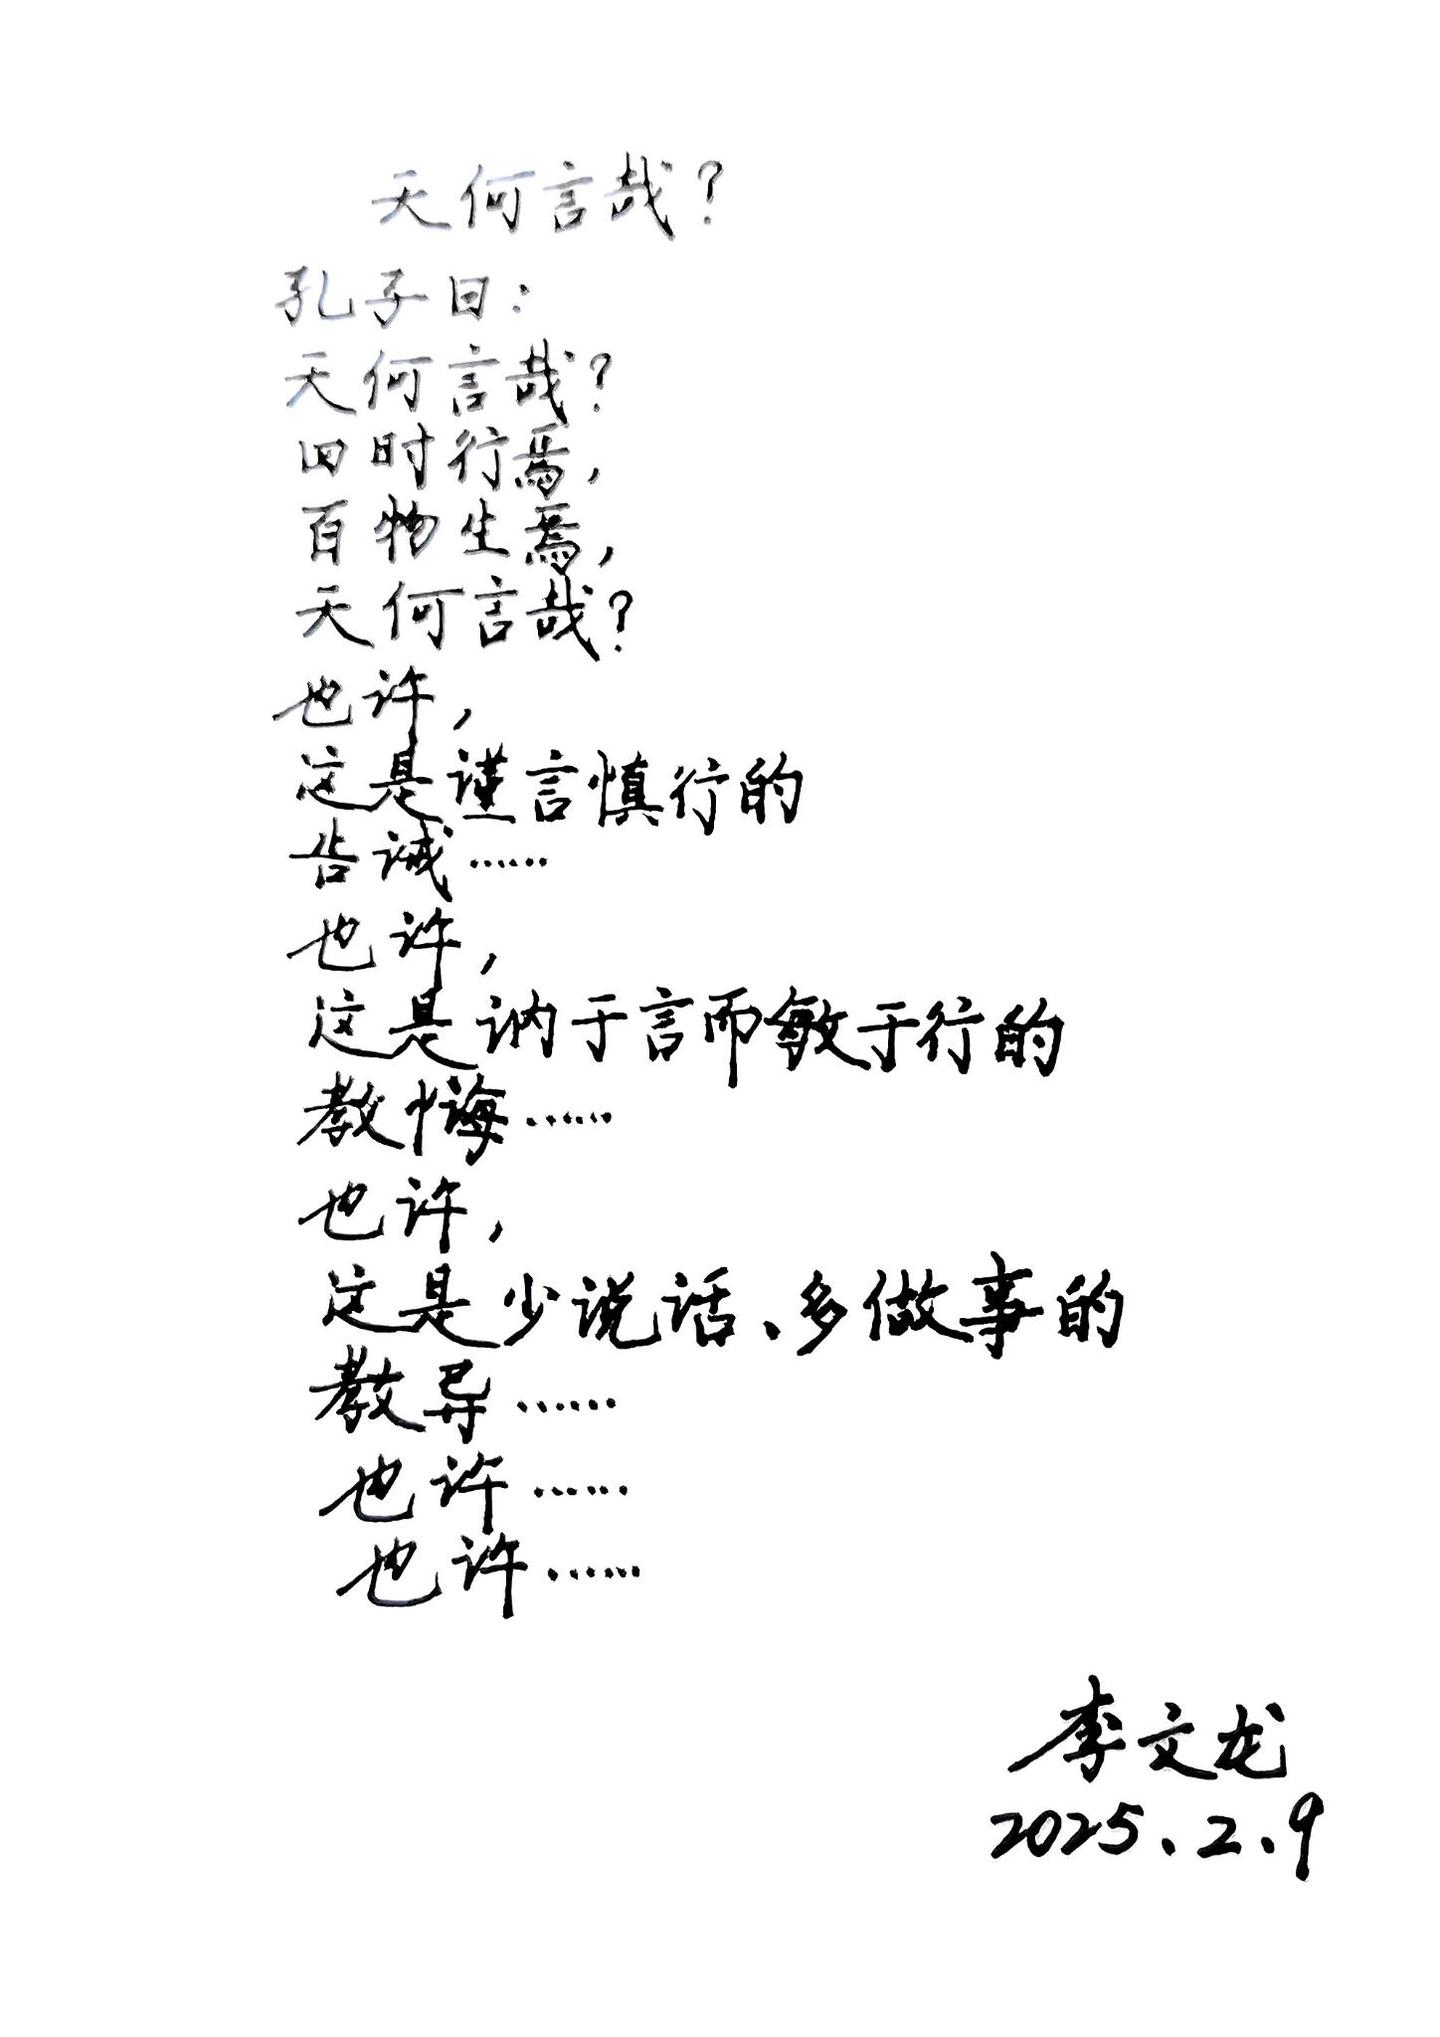 天何言哉?
孔子曰:
天何言哉?
四时行焉,
百物生焉,
天何言哉?
也许,
这是谨言慎行的
告诫……
也许,
这是讷于言而敏于行的
教悔……
也许,
这是少说话、多做事的
教导……
也许……
也许……
李文龙
2025.2.9